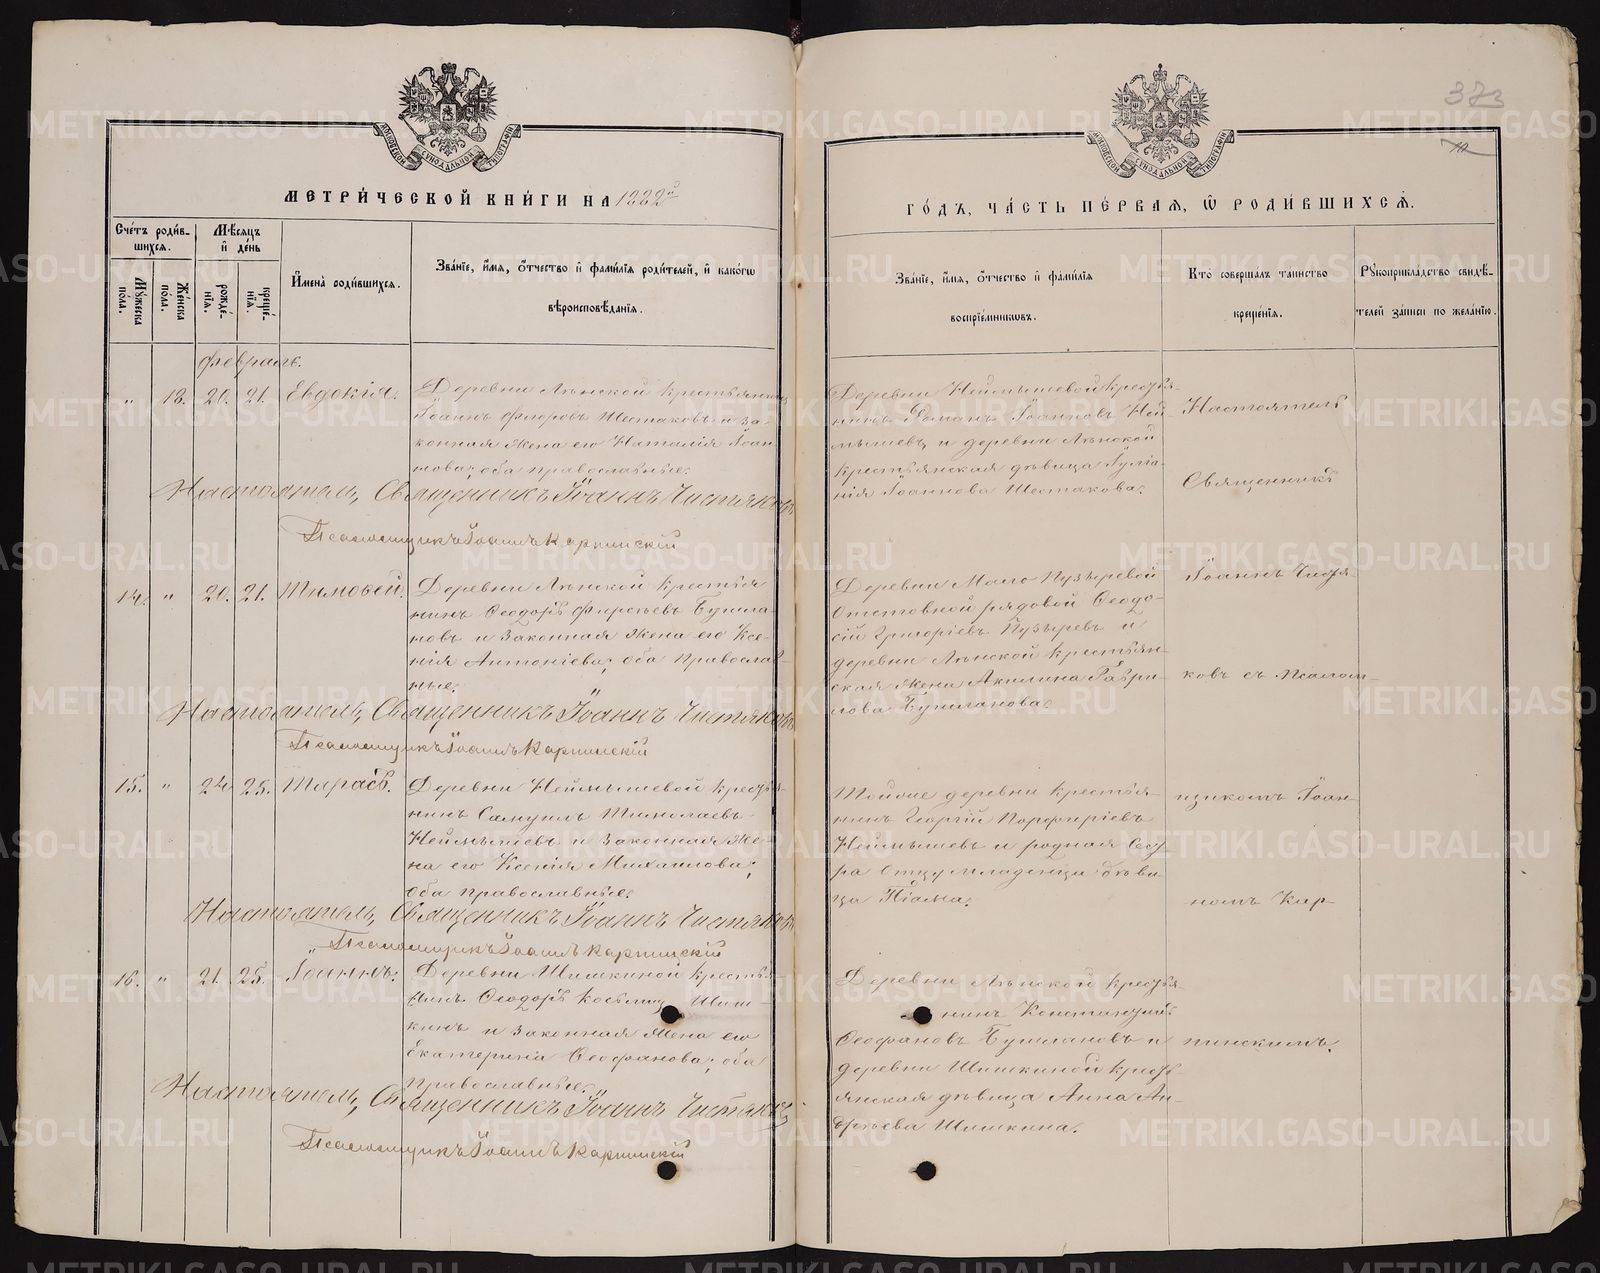 373
10
МЕТРИ́ЧЕСКОЙ КНИ́ГИ НА 1882й
ГО́ДЪ, ЧА́СТЬ ПЕ́РВАЯ, Ѽ РОДИ́ВШИХСЯ.
Сче́тъ роди́в-
шихся.
Мѣ́сяцъ
и҆ де́нь
Му́жеска
по́ла.
Же́нска
по́ла.
рожде́-
нїя.
креще́-
нїя.
И҆мена̀ роди́вшихся.
Зва́нїе, и҆́мя, ѻ҆́тчество и҆ фами́лїя роди́телей, и҆ како́гѡ
вѣроисповѣ́данїя.
Зва́нїе, и҆́мя, ѻ҆́тчество и҆ фами́лїя
воспрїе́мниковъ.
Кто̀ соверша́лъ та́инство
креще́нїя.
Рꙋкоприкла́дство свидѣ́-
телей за́писи по жела́нїю.
Февраль.
" 18. 20. 21. Евдокія.
Деревни Лѣнской крестьянинъ
Іоаннъ Фироровъ Шестаковъ и за-
конная жена его Наталія Іоан-
нова; оба православные.
Деревни Неймышевой крестья-
нинъ Романъ Іоанновъ Ней
мышевъ и деревни Лѣнской
крестьянская дѣвица Іулiа-
нія Іоаннова Шестакова.
Настоятель, Священникъ Іоаннъ Чистяковъ
Псаломщикъ Іоаннъ Карпинскій
14. " 20. 21. Тимоѳей.
Деревни Лѣнской крестья
нинъ Ѳеодоръ Фирсъевъ Бушла-
новъ и законная жена его Ксе-
нія Антоніева; оба православ-
ные.
Деревни Мало Пузыревой
Отставной рядовой Ѳеодо-
сій Григоріевъ Пузыревъ и
деревни Лѣнской крестьян-
ская жена Акилина Гаври-
лова Бушланова.
Настоятель, Священникъ Іоаннъ Чистяковъ
Псаломщикъ Іоаннъ Карпинскій
15. " 24. 25. Тарасъ.
Деревни Неймышевой крестья-
нинъ Самуилъ
Неймышевъ и законная же-
на его Ксенія Михаилова;
оба православные.
Тойже деревни крестья-
нинъ Георгій Порфиріевъ
Неймышевъ и родная сест
ра отцу младенца дѣви-
ца
Настоятель, Священникъ Іоаннъ Чистяковъ
Псаломщикъ Іоаннъ Карпинскій
16. " 21. 25. Іоаннъ.
Деревни Шишкиной крестья-
нинъ Ѳеодоръ Косьминъ Шиш-
кинъ и законная жена его
Екатерина Ѳеофанова; оба
православные.
Деревни Лѣнской крестья
нинъ Константинъ
Ѳеофановъ Бушлановъ и
деревни Шишкиной кресть
янская дѣвица Анна Ан-
дреева Шишкина.
Настоятель, Священникъ Іоаннъ Чистяковъ
Псаломщикъ Іоаннъ Карпинскій
Настоятель
Священникъ
Іоаннъ Чистя-
ковъ съ псалом-
щикомъ Іоан-
номъ Кар-
пинскимъ.
METRIKI.GASO-URAL.RU